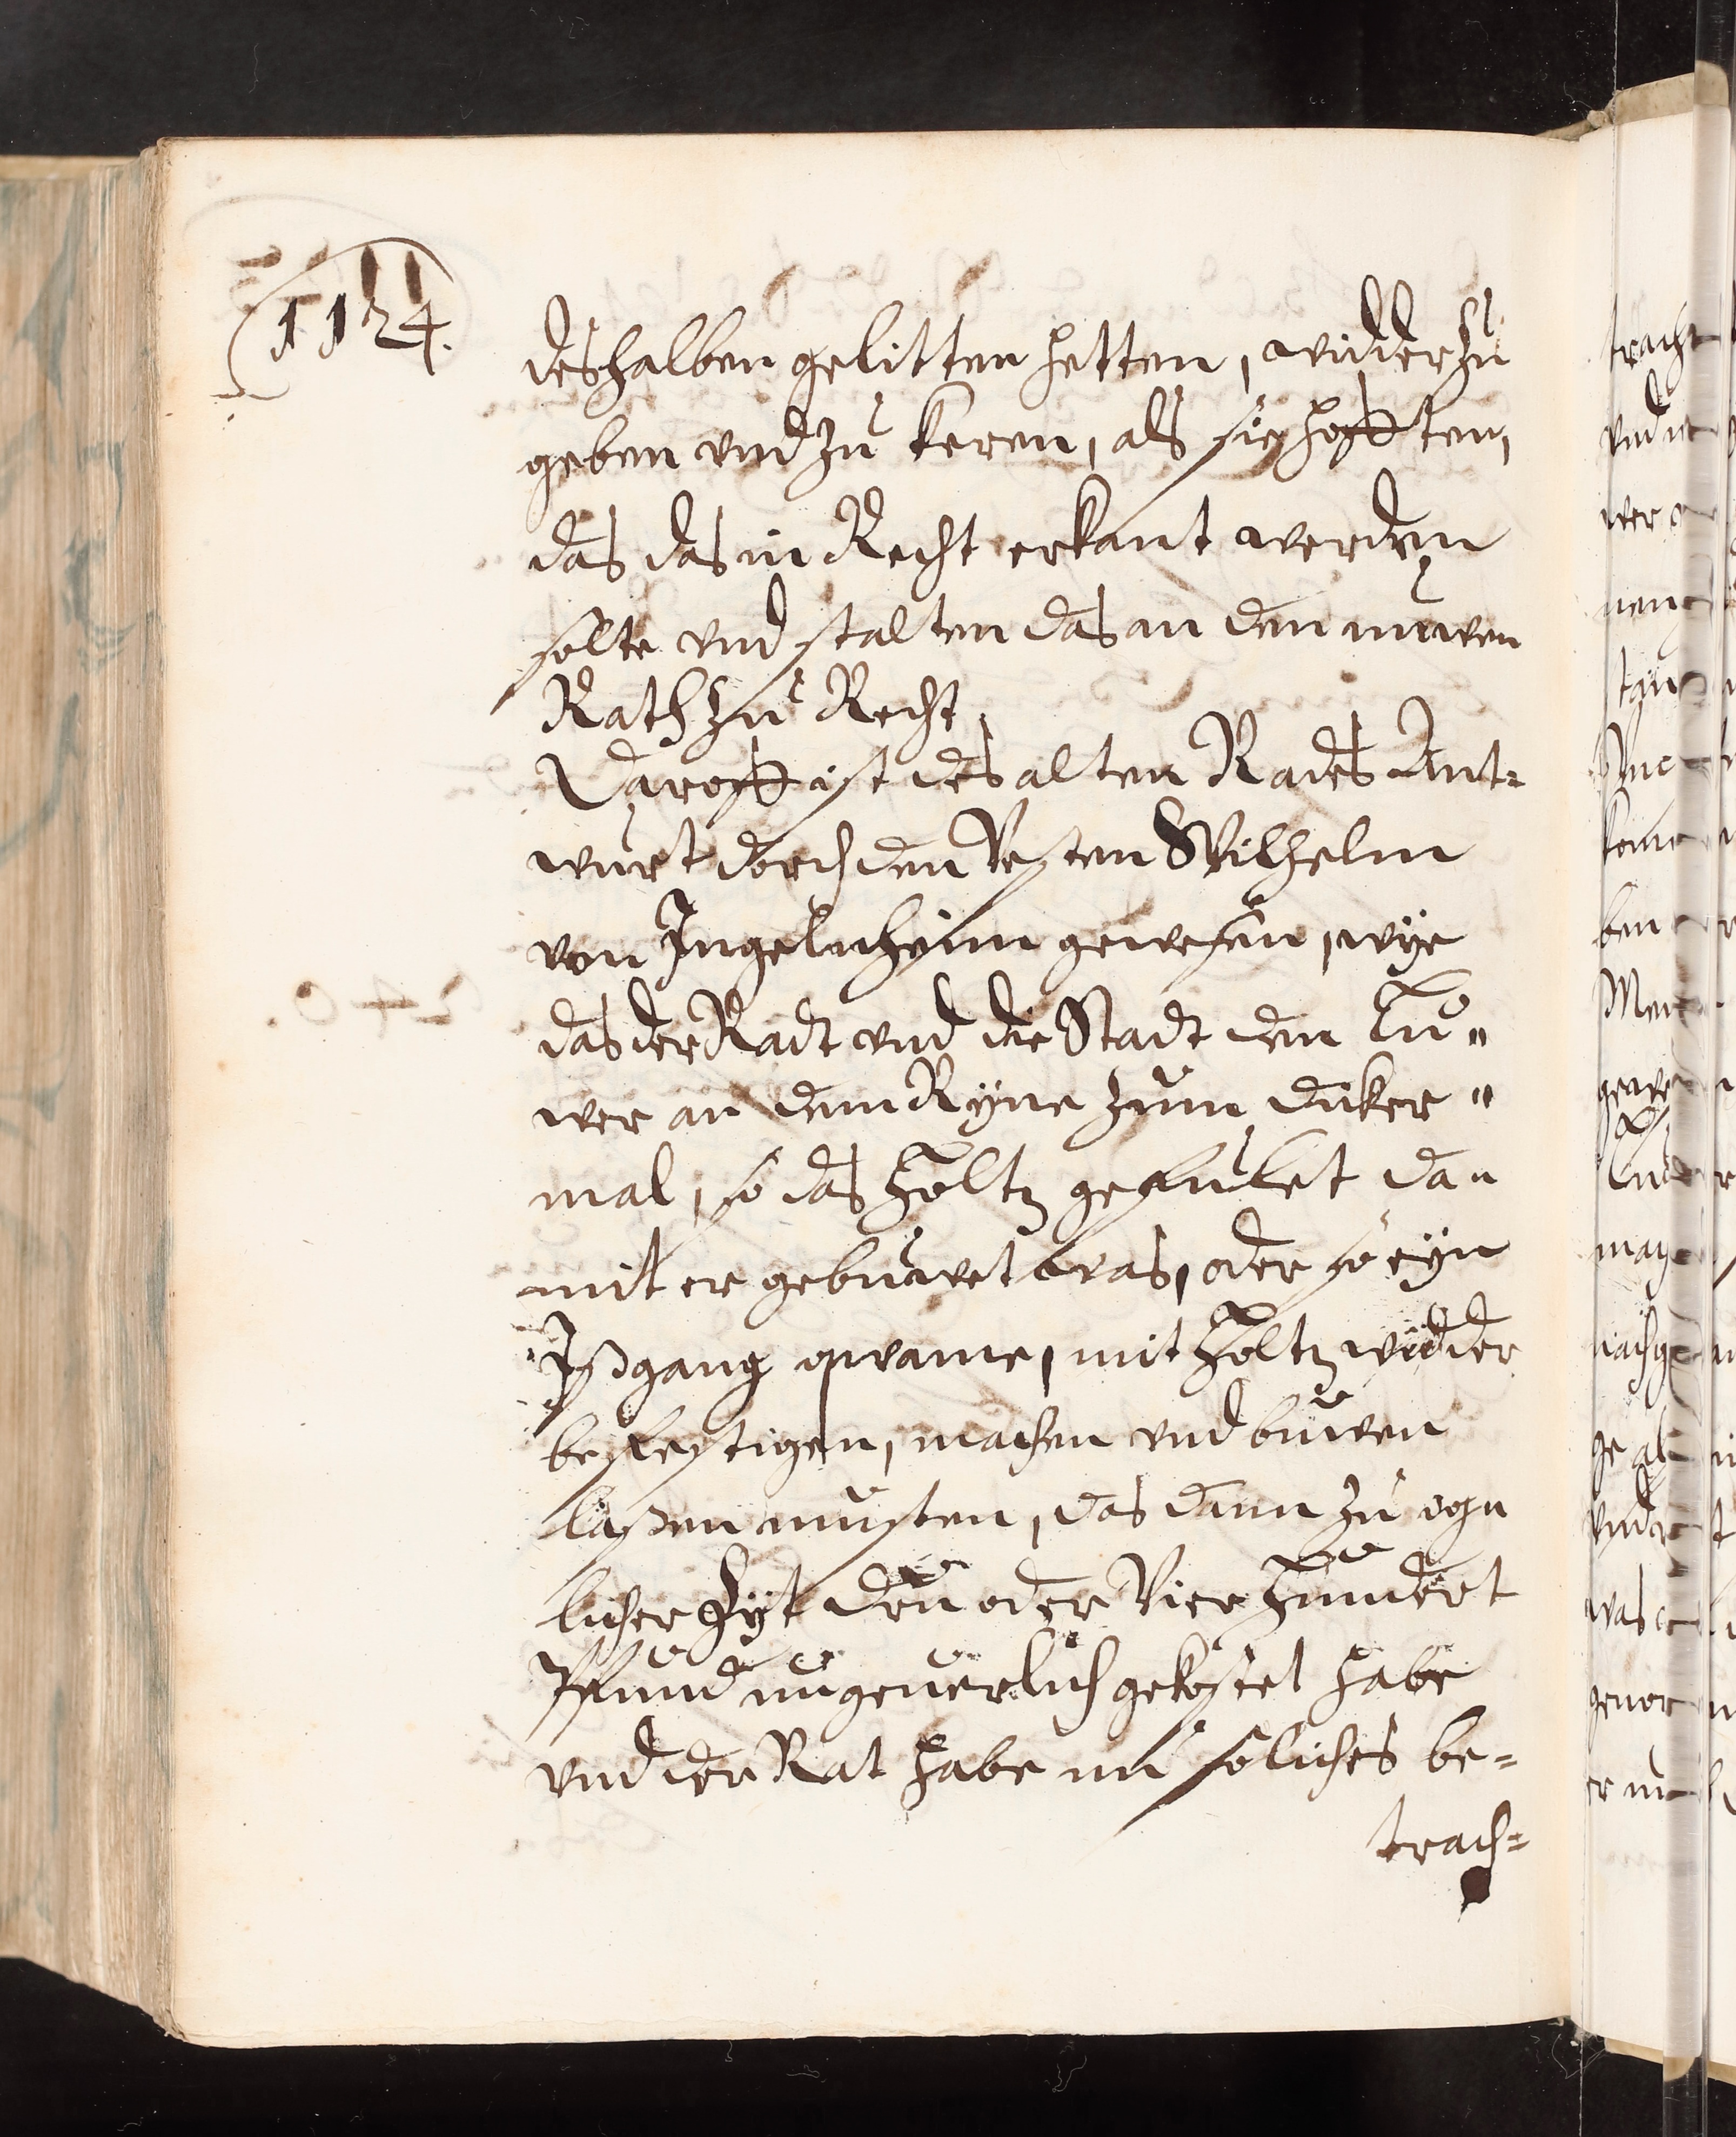 1124.
deshalben gelitten hetten, widder zu
geben vnd zu keren, als sie hofften,
das das in Recht erkant werden
solte vnd stalten das an den nuwen
Rath zu Recht
Daroff ist des alten Rades Ant=
wurt dorch den Vesten Wilhelm
von Ingelnheim gewesen, wÿe
das der Radt vnd die Stadt den Lu"
wer an dem Rÿne zum dicker"
mal, so das Holtz gefulet da
mit er gebuwet was, oder so eÿn
Ißgang qwame, mit Holtz widder
befestigen, machen vnd buwen
laßen musten, das dann zu
licher Zÿt dru oder Vier Hundert
Pfund ungeuerlich gekostet habe
vnd der Rat habe nu soliches be=
trach=